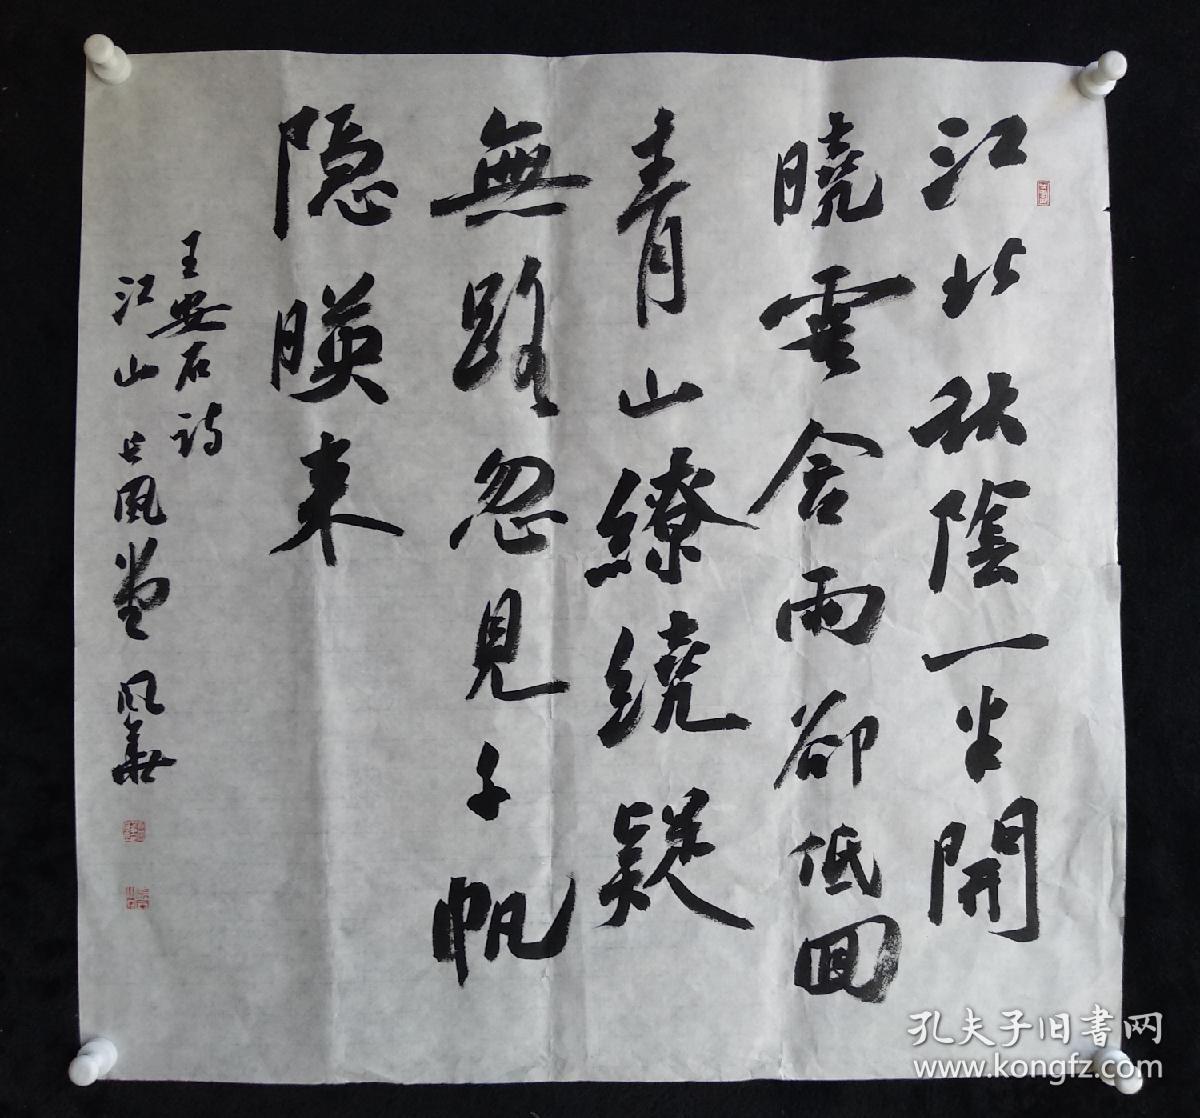 江北秋陰一半開
曉雲含雨卻低囬
青山繚繞疑
無路忽見千帆
隐暎来
王安石詩
江山长風堂风華
孔夫子旧書网
www.kongfz.com